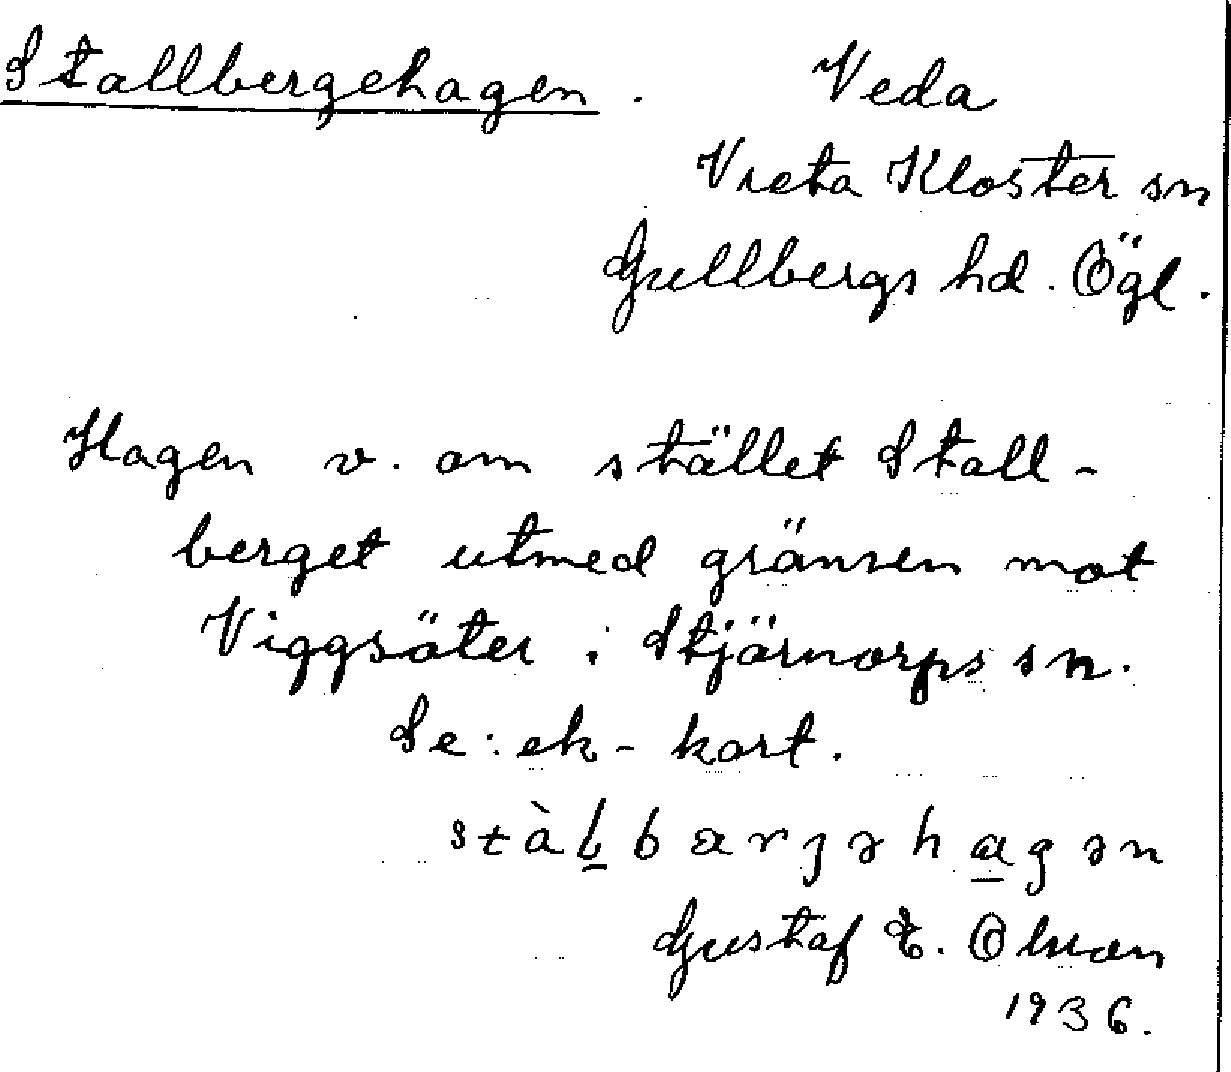 Stallbergehagen. Veda
Vreta Kloster sn
Gullbergs hd. Ögl.
Hagen v. om stället Stall-
berget utmed gränsen mot
Viggsäter i Stjärnorps sn.
Se: ek-kort.
Gustaf E. Olsson
1936.